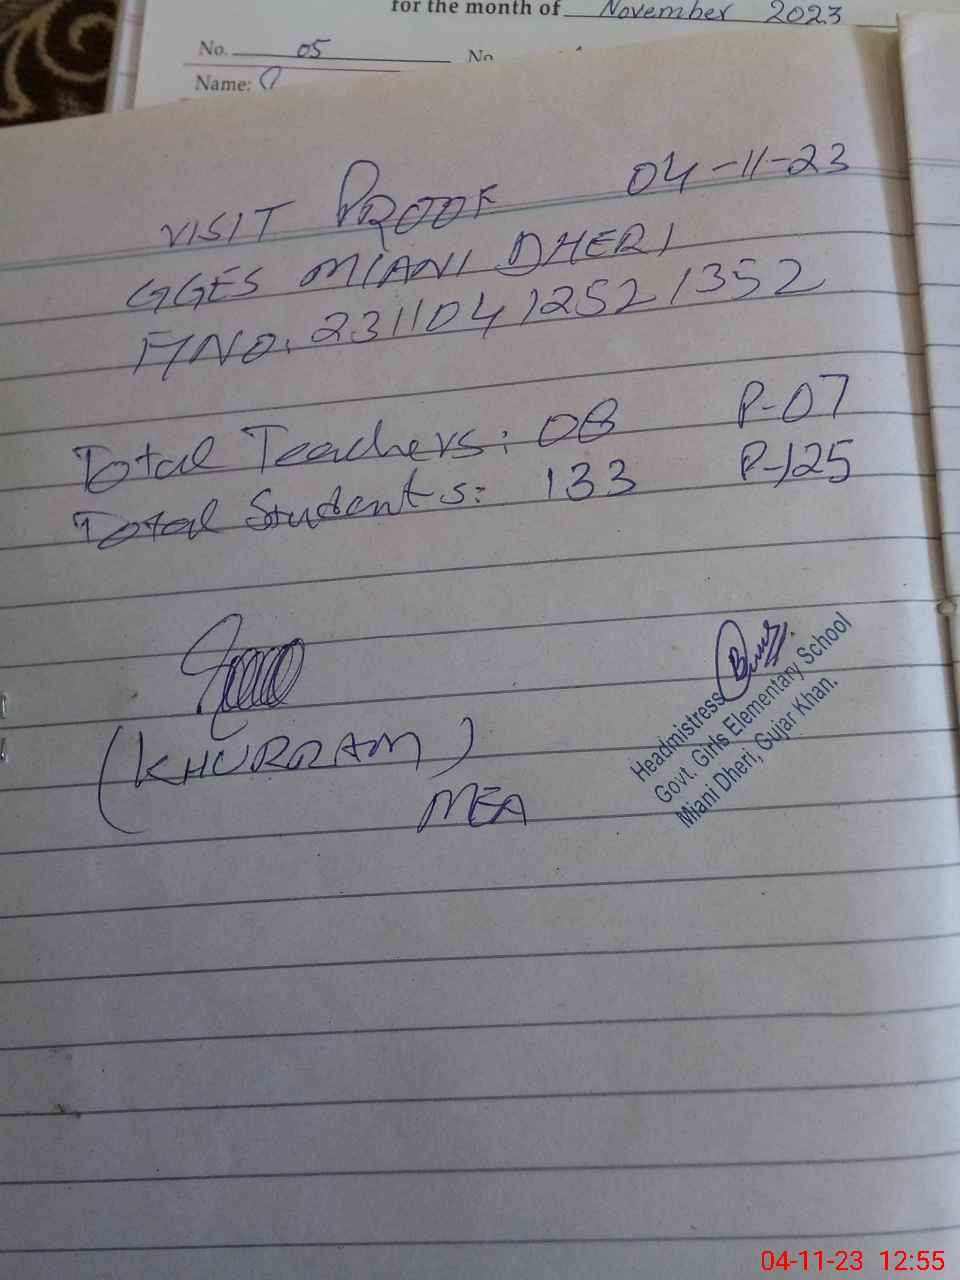 for the month of November 2023
No. 05 No
Name:
VISIT PROOF 04-11-23
GGES MIANI DHERI
F/NO. 23110412521352
Total Teachers: 08 P-07
Total Students: 133 P-125
(KHURRAM)
MEA
Headmistress
Govt. Girls Elementary School
Miani Dheri, Gujar Khan.
04-11-23 12:55